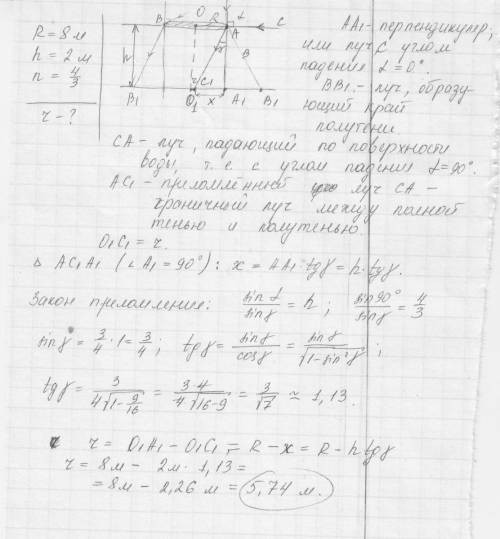 R = 8 м
h = 2 м
n = 4/3
r - ?
B O R A α C
h γ B
B₁ O₁ C₁ x A₁ B₁
AA₁ - перпендикуляр,
или луч с углом
падения α = 0°.
BB₁ - луч, образу-
ющий край
полутени.
CA - луч, падающий по поверхности
воды, т. е. с углом падения α = 90°.
AC₁ - преломлённый луч CA -
граничный луч между полной
тенью и полутенью.
O₁C₁ = r.
Δ AC₁A₁ (∠A₁ = 90°): x = AA₁ · tgγ = h · tgγ.
Закон преломления: sinα/sinγ = n ; sin90°/sinγ = 4/3
sinγ = 3/4 · 1 = 3/4 ; tgγ = sinγ/cosγ = sinγ/√(1-sin²γ) ;
tgγ = 3/(4√(1-9/16)) = 3·4/(4√(16-9)) = 3/√7 ≈ 1,13.
r = O₁A₁ - O₁C₁ = R - x = R - h tgγ
r = 8м - 2м · 1,13 =
= 8м - 2,26 м = 5,74 м.